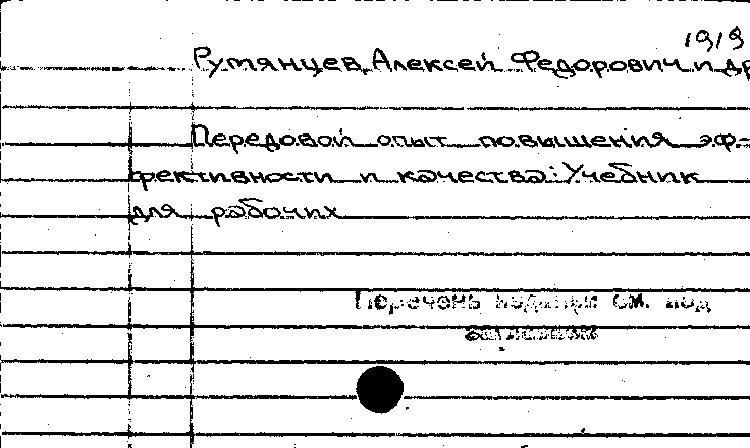 1919
Румянцев, Алексей Федорович и др
Передовой опыт повышения эф-
фективности и качества: Учебник
для рабочих
Перечень изданий см. под
заглавием